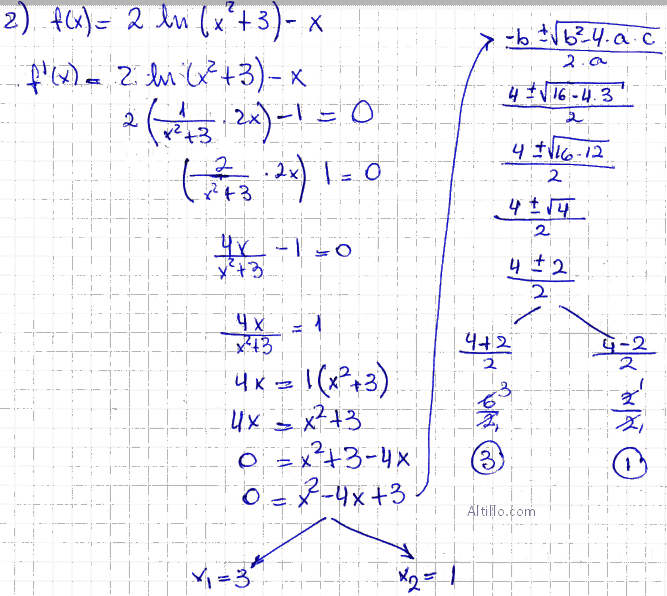 2) f(x) = 2 ln (x²+3) - x
f'(x) = 2 · ln (x²+3) - x
2 (1/(x²+3) · 2x) - 1 = 0
(2/(x²+3) · 2x) 1 = 0
4x/(x²+3) - 1 = 0
4x/(x²+3) = 1
4x = 1(x²+3)
4x = x²+3
0 = x²+3-4x
0 = x²-4x+3
x₁ = 3 x₂ = 1
(-b ± √(b²-4·a·c))/(2·a)
(4 ± √(16-4·3))/2
(4 ± √(16-12))/2
(4 ± √4)/2
(4 ± 2)/2
(4+2)/2 (4-2)/2
6/2 3 1 2/2 1 1
3 1
Altillo.com